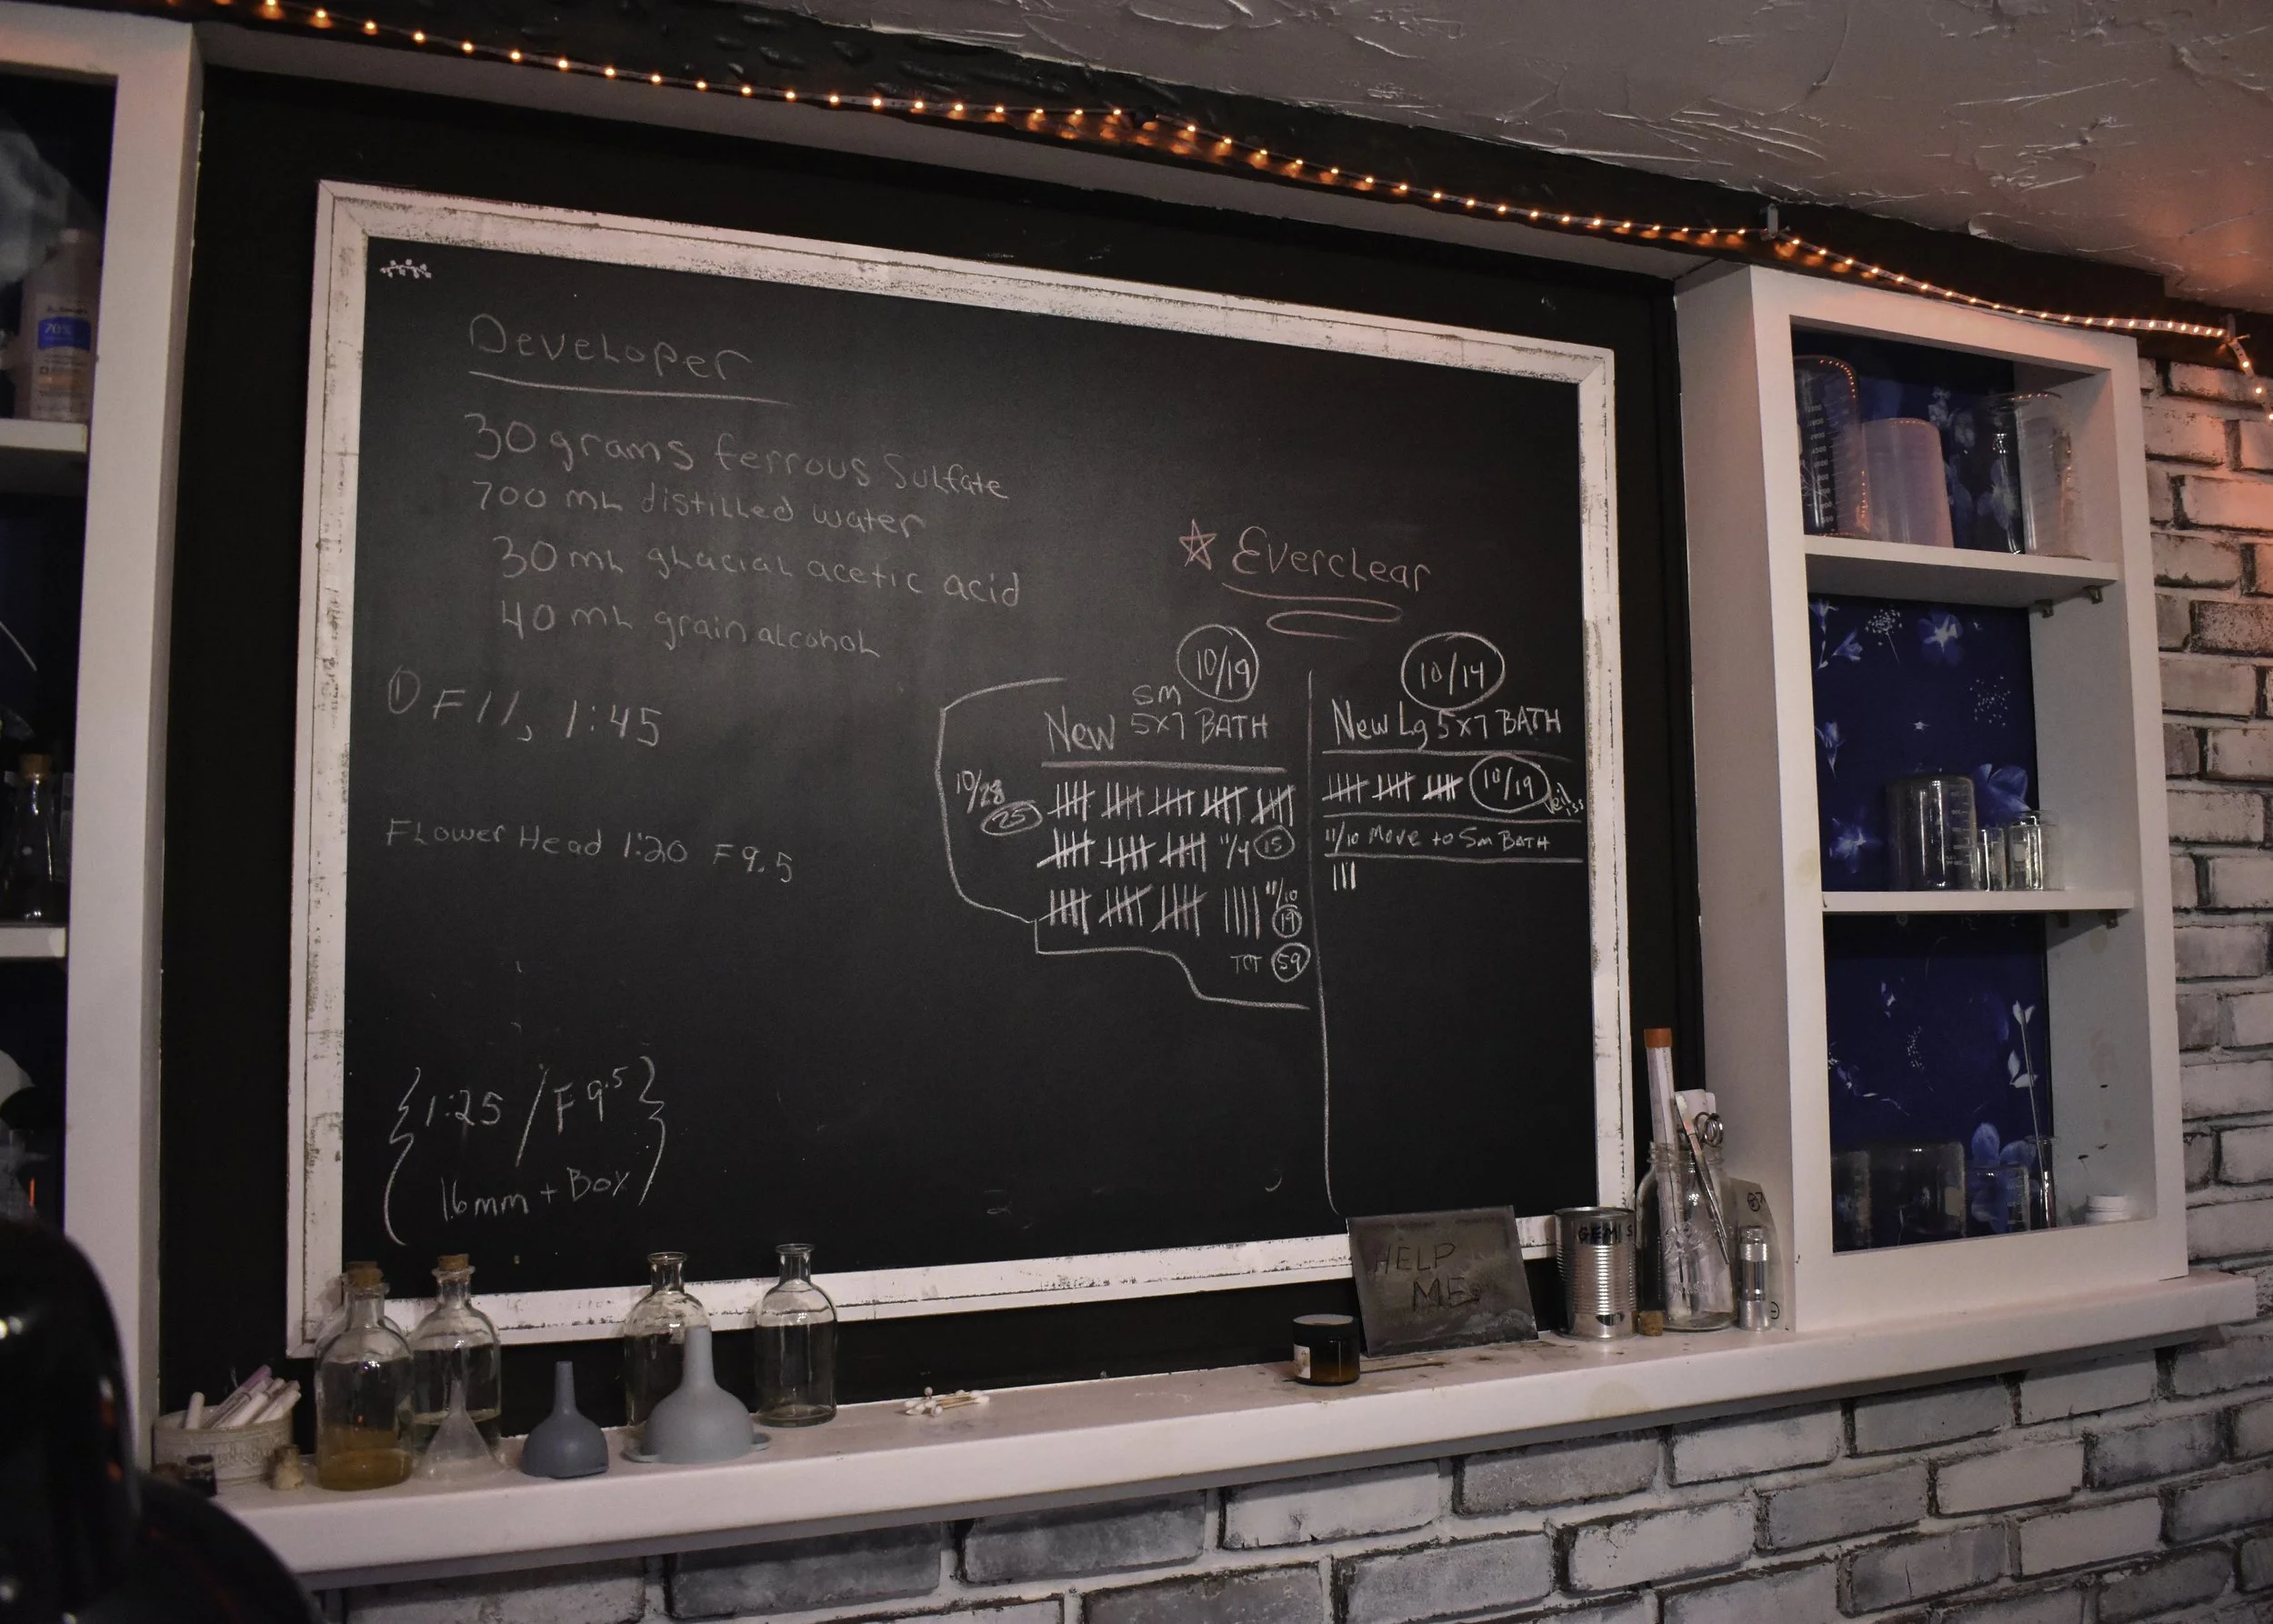 Developer
30 grams ferrous Sulfate
700 mL distilled water
30 mL glacial acetic acid
40 mL grain alcohol
① F11, 1:45
Flower Head 1:20 F9.5
{1:25 / F9.5}
16mm + Box
☆ Everclear
10/19
Sm
New 5x7 BATH
10/28
25
11/4 15
11/10
19
TOT 59
10/14
New Lg 5x7 BATH
10/19
11/10 Move to Sm BATH
HELP
ME
GEMS
70%